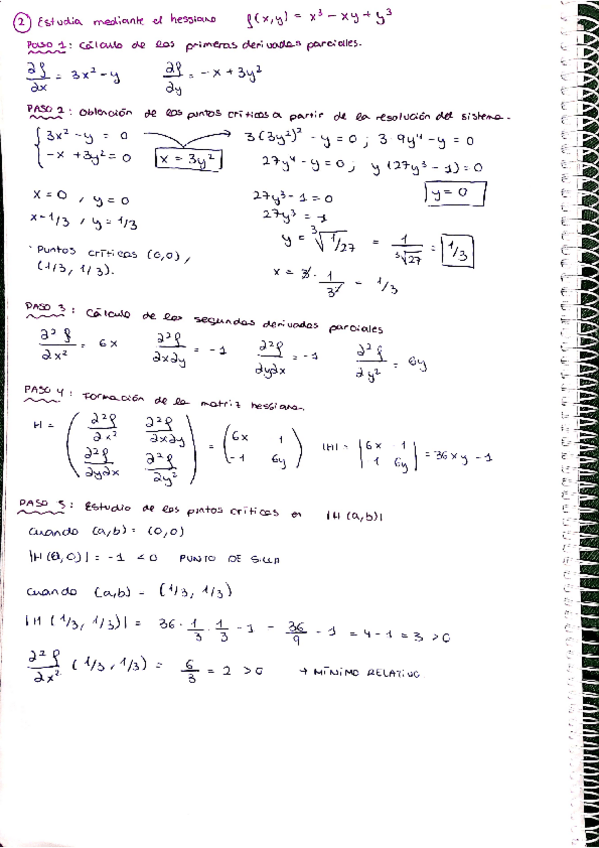 ② Estudia mediante el hessiano f(x,y) = x³ − xy + y³
Paso 1: Cálculo de las primeras derivadas parciales.
∂f/∂x = 3x² − y   ∂f/∂y = −x + 3y²
PASO 2: Obtención de los puntos críticos a partir de la resolución del sistema.
{ 3x² − y = 0 → 3(3y²)² − y = 0 ; 3 9y⁴ − y = 0
{ −x + 3y² = 0   x = 3y²   27y⁴ − y = 0 ; y(27y³ − 1) = 0
y = 0
x = 0 , y = 0   27y³ − 1 = 0
x = 1/3 , y = 1/3   27y³ = 1
y = ³√1/27 = 1/³√27 = 1/3
· Puntos críticos (0,0),
(1/3, 1/3).   x = 3 · 1/3² = 1/3
PASO 3: Cálculo de las segundas derivadas parciales
∂²f/∂x² = 6x   ∂²f/∂x∂y = −1   ∂²f/∂y∂x = −1   ∂²f/∂y² = 6y
PASO 4: Formación de la matriz hessiana.
H = ( ∂²f/∂x² ∂²f/∂x∂y ; ∂²f/∂y∂x ∂²f/∂y² ) = ( 6x 1 ; −1 6y )   |H| = | 6x 1 ; 1 6y | = 36xy − 1
PASO 5: Estudio de los puntos críticos en |H(a,b)|
Cuando (a,b) = (0,0)
|H(0,0)| = −1 < 0 PUNTO DE SILLA
Cuando (a,b) = (1/3, 1/3)
|H(1/3, 1/3)| = 36 · 1/3 · 1/3 − 1 = 36/9 − 1 = 4 − 1 = 3 > 0
∂²f/∂x² (1/3, 1/3) = 6/3 = 2 > 0 → MÍNIMO RELATIVO